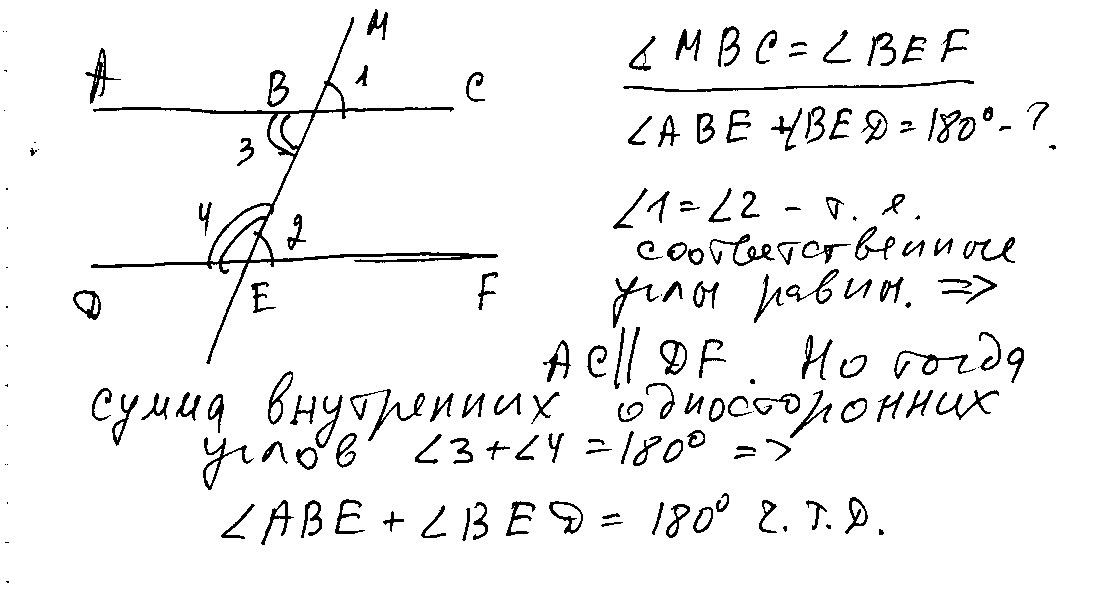 M
A B 1 C
3
4 2
D E F
∠MBC=∠BEF
∠ABE+∠BED=180°-?
∠1=∠2 - т. е.
соответственные
углы равны. =>
AC||DF. Но тогда
сумма внутренних односторонних
углов ∠3+∠4=180° =>
∠ABE+∠BED=180° ч.т.д.